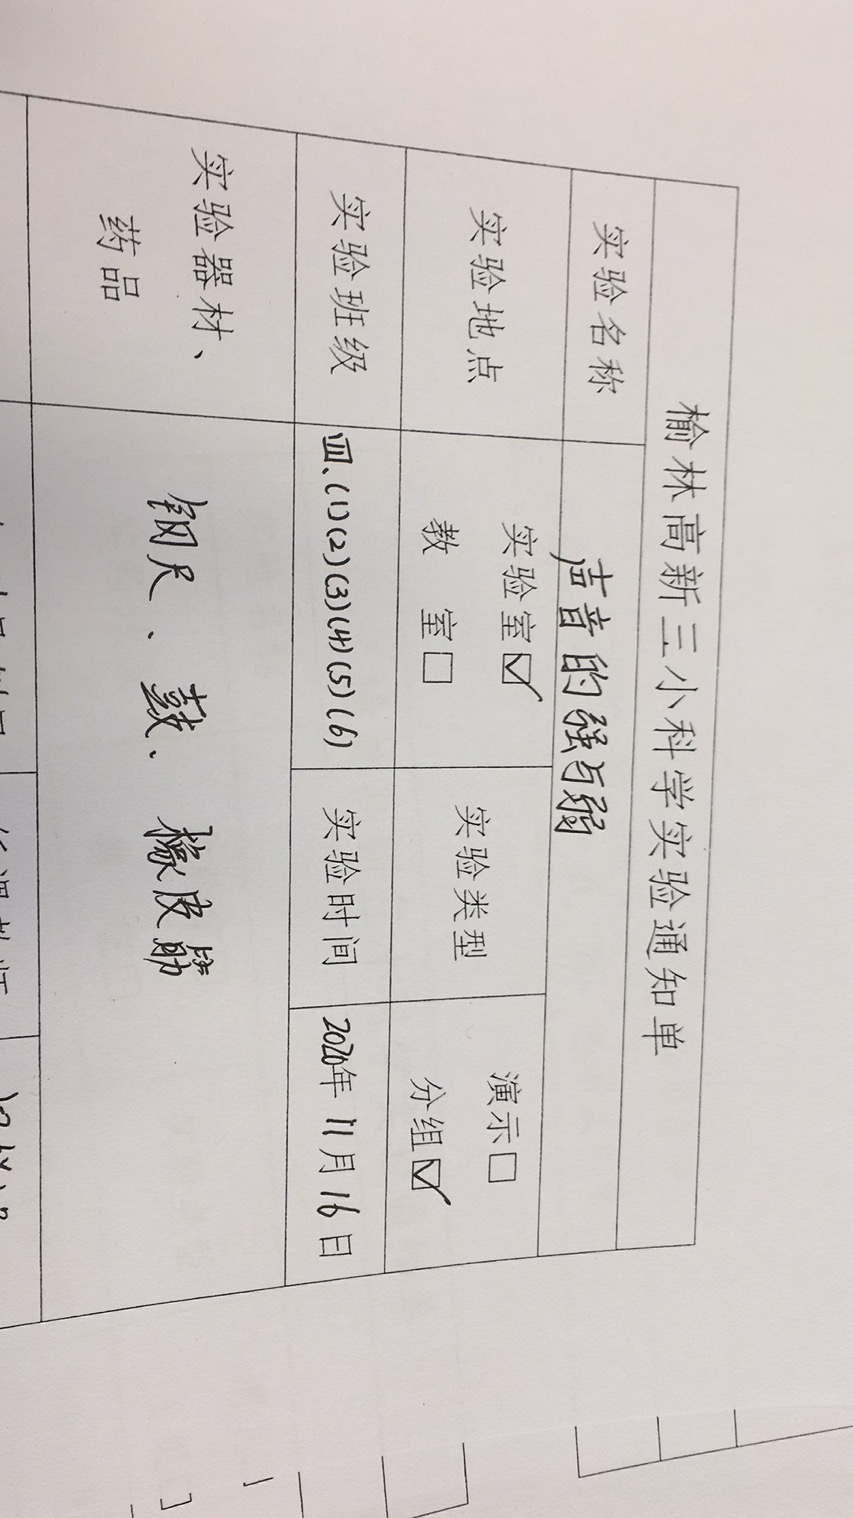 榆林高新三小科学实验通知单
实验名称 声音的强与弱
实验地点 实验室☑ 教 室□ 实验类型 演示□ 分组☑
实验班级 四、(1)(2)(3)(4)(5)(6) 实验时间 2020年11月16日
实验器材、
药品
钢尺、鼓、橡皮筋